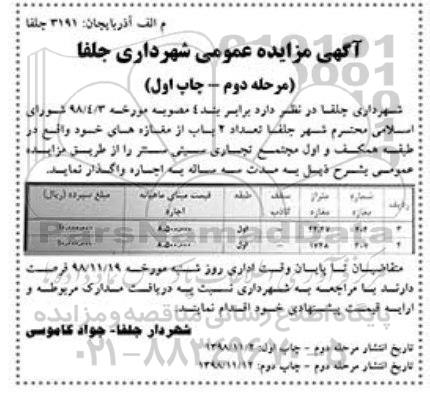 م الف آذربایجان: ۳۱۹۱ جلفا
آگهی مزایده عمومی شهرداری جلفا
(مرحله دوم - چاپ اول)
شهرداری جلفا در نظر دارد برابر بند ٤ مصوبه مورخه ۹۸/٤/۳ شورای
اسلامی محترم شهر جلفا تعداد ۲ باب از مغازه های خود واقع در
طبقه همکف و اول مجتمع تجاری سیتی سنتر را از طریق مزایده
عمومی بشرح ذیل به مدت سه ساله به اجاره واگذار نماید.
ردیف شماره مغازه متراژ مغازه سقف کاذب طبقه قیمت مبنای ماهیانه اجاره مبلغ سپرده (ریال)
اول ۸.۵۰۰.۰۰۰
اول ۸.۵۰۰.۰۰۰
ParsNamadData
متقاضیان تا پایان وقت اداری روز شنبه مورخه ۹۸/۱۱/۱۹ فرصت
دارند با مراجعه به شهرداری نسبت به دریافت مدارک مربوطه و
ارایه قیمت پیشنهادی خود اقدام نمایند.
پایگاه اطلاع رسانی مناقصه و مزایده
شهردار جلفا- جواد کاموسی
تاریخ انتشار مرحله دوم - چاپ اول: ۱۳۹۸/۱۱/۴
تاریخ انتشار مرحله دوم - چاپ دوم: ۱۳۹۸/۱۱/۱۲